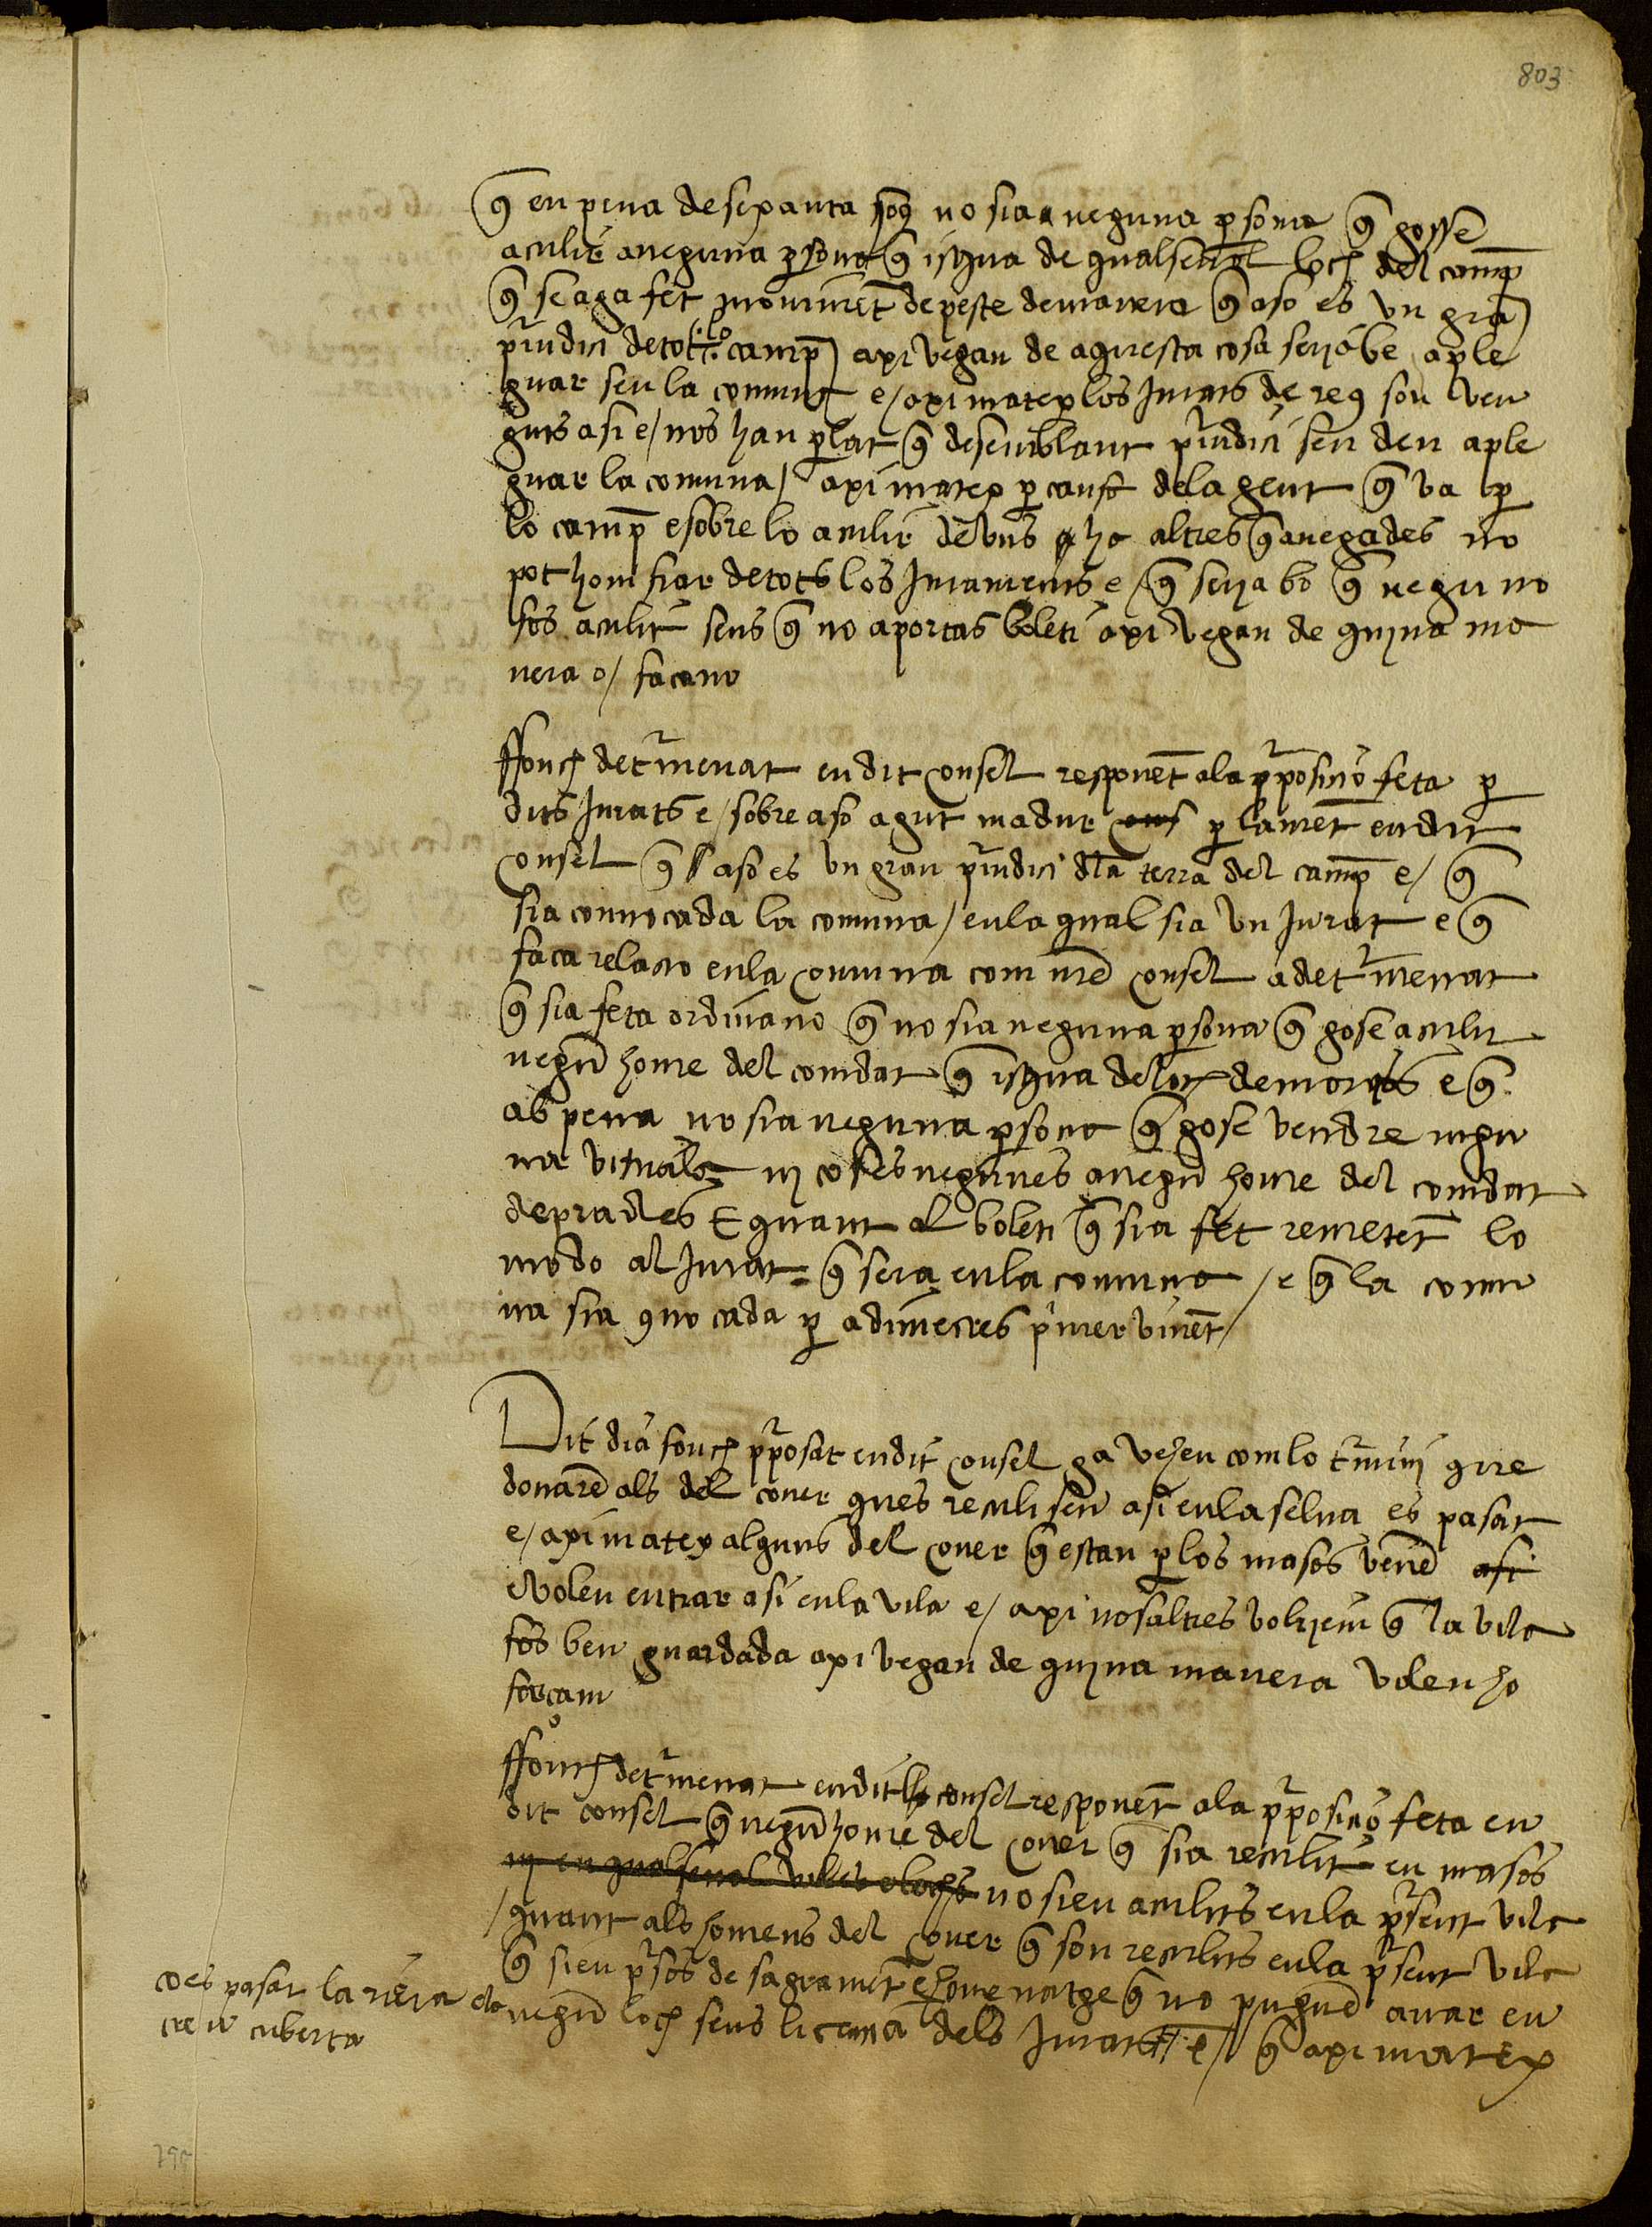 803
q̄ en pena de sexanta sos no sia neguna p̱sona q̄ gosse
aculir a neguna p̱sona q̄ isqua de qualsevol loch del camp
q̄ se aga fet moviment de peste de manera q̄ aso es vn gra
p̱iudici de tot lo camp axi vegan de aquesta cosa serja be aple
guar sen la comuna e/ axi matex los Jurats de reus son ven
guts asi e/ nos han p̱lat q̄ de semblant p̱iudici sen deu aple
guar la comuna/ axi matex p̱ causa de la gent q̄ va p̱
lo camp e sobre lo aculir de vns ho altres q̄ a negades no
pot hom fiar de tots los Juraments e/ q̄ serja bo q̄ negu no
fos aculit sens q̄ no aportas boleti axi vegan de quina ma
nera o/ faran
ffonch det̄menat en dit consel responēt a la p̱posicio feta p̱
dits Jurats e/ sobre aso agut madur p̱lamēt en dit
consel q̄ aso es vn gran p̱iudici d̄la terra del camp e/ q̄
sia convocada la comuna/ en la qual sia vn Jurat e q̄
faca relacio en la comuna com nr̄e consel a det̄menat
q̄ sia feta ordinacio q̄ no sia neguna p̱sona q̄ gose aculir
negū home del comdat q̄ isqua de loch de morts e q̄
ab pena no sia neguna p̱sona q̄ gose vendre negu
na vitualla nj coses negunes a negū home del comdat
de prades E quant al boleti q̄ sia fet remetēt lo
modo al Jurat q̄ sera en la comuna / e q̄ la comu
na sia 9vocada p̱ a dimecres p̱mer vinēt/
Dit dia fonch p̱posat en dit consel ja vehen com lo t̄minj que
donarē als del cover ques reculisen asi en la selva es pasat
e/ axi matex alguns del cover q̄ estan p̱ los masos venē asi
e volen entrar asi en la vila e/ axi nosaltres voljem q̄ la vila
fos ben guardada axi vegan de quina manera volen ho
façam
ffonch det̄menat en dit consel responēt a la p̱posicio feta en
dit consel q̄ negū home del cover q̄ sia reculit en masos
nj en qualsevol viles o lochs no sien aculits en la p̱sent vila
/ quant als homens del cover q̄ son reculits en la p̱sent vila
q̄ sien p̱sos de sagramēt e homenatge q̄ no puguē anar en
negū loch sens licencia dels Jurats e/ q̄ axi matex
co es pasar la riera ela
creu cuberta